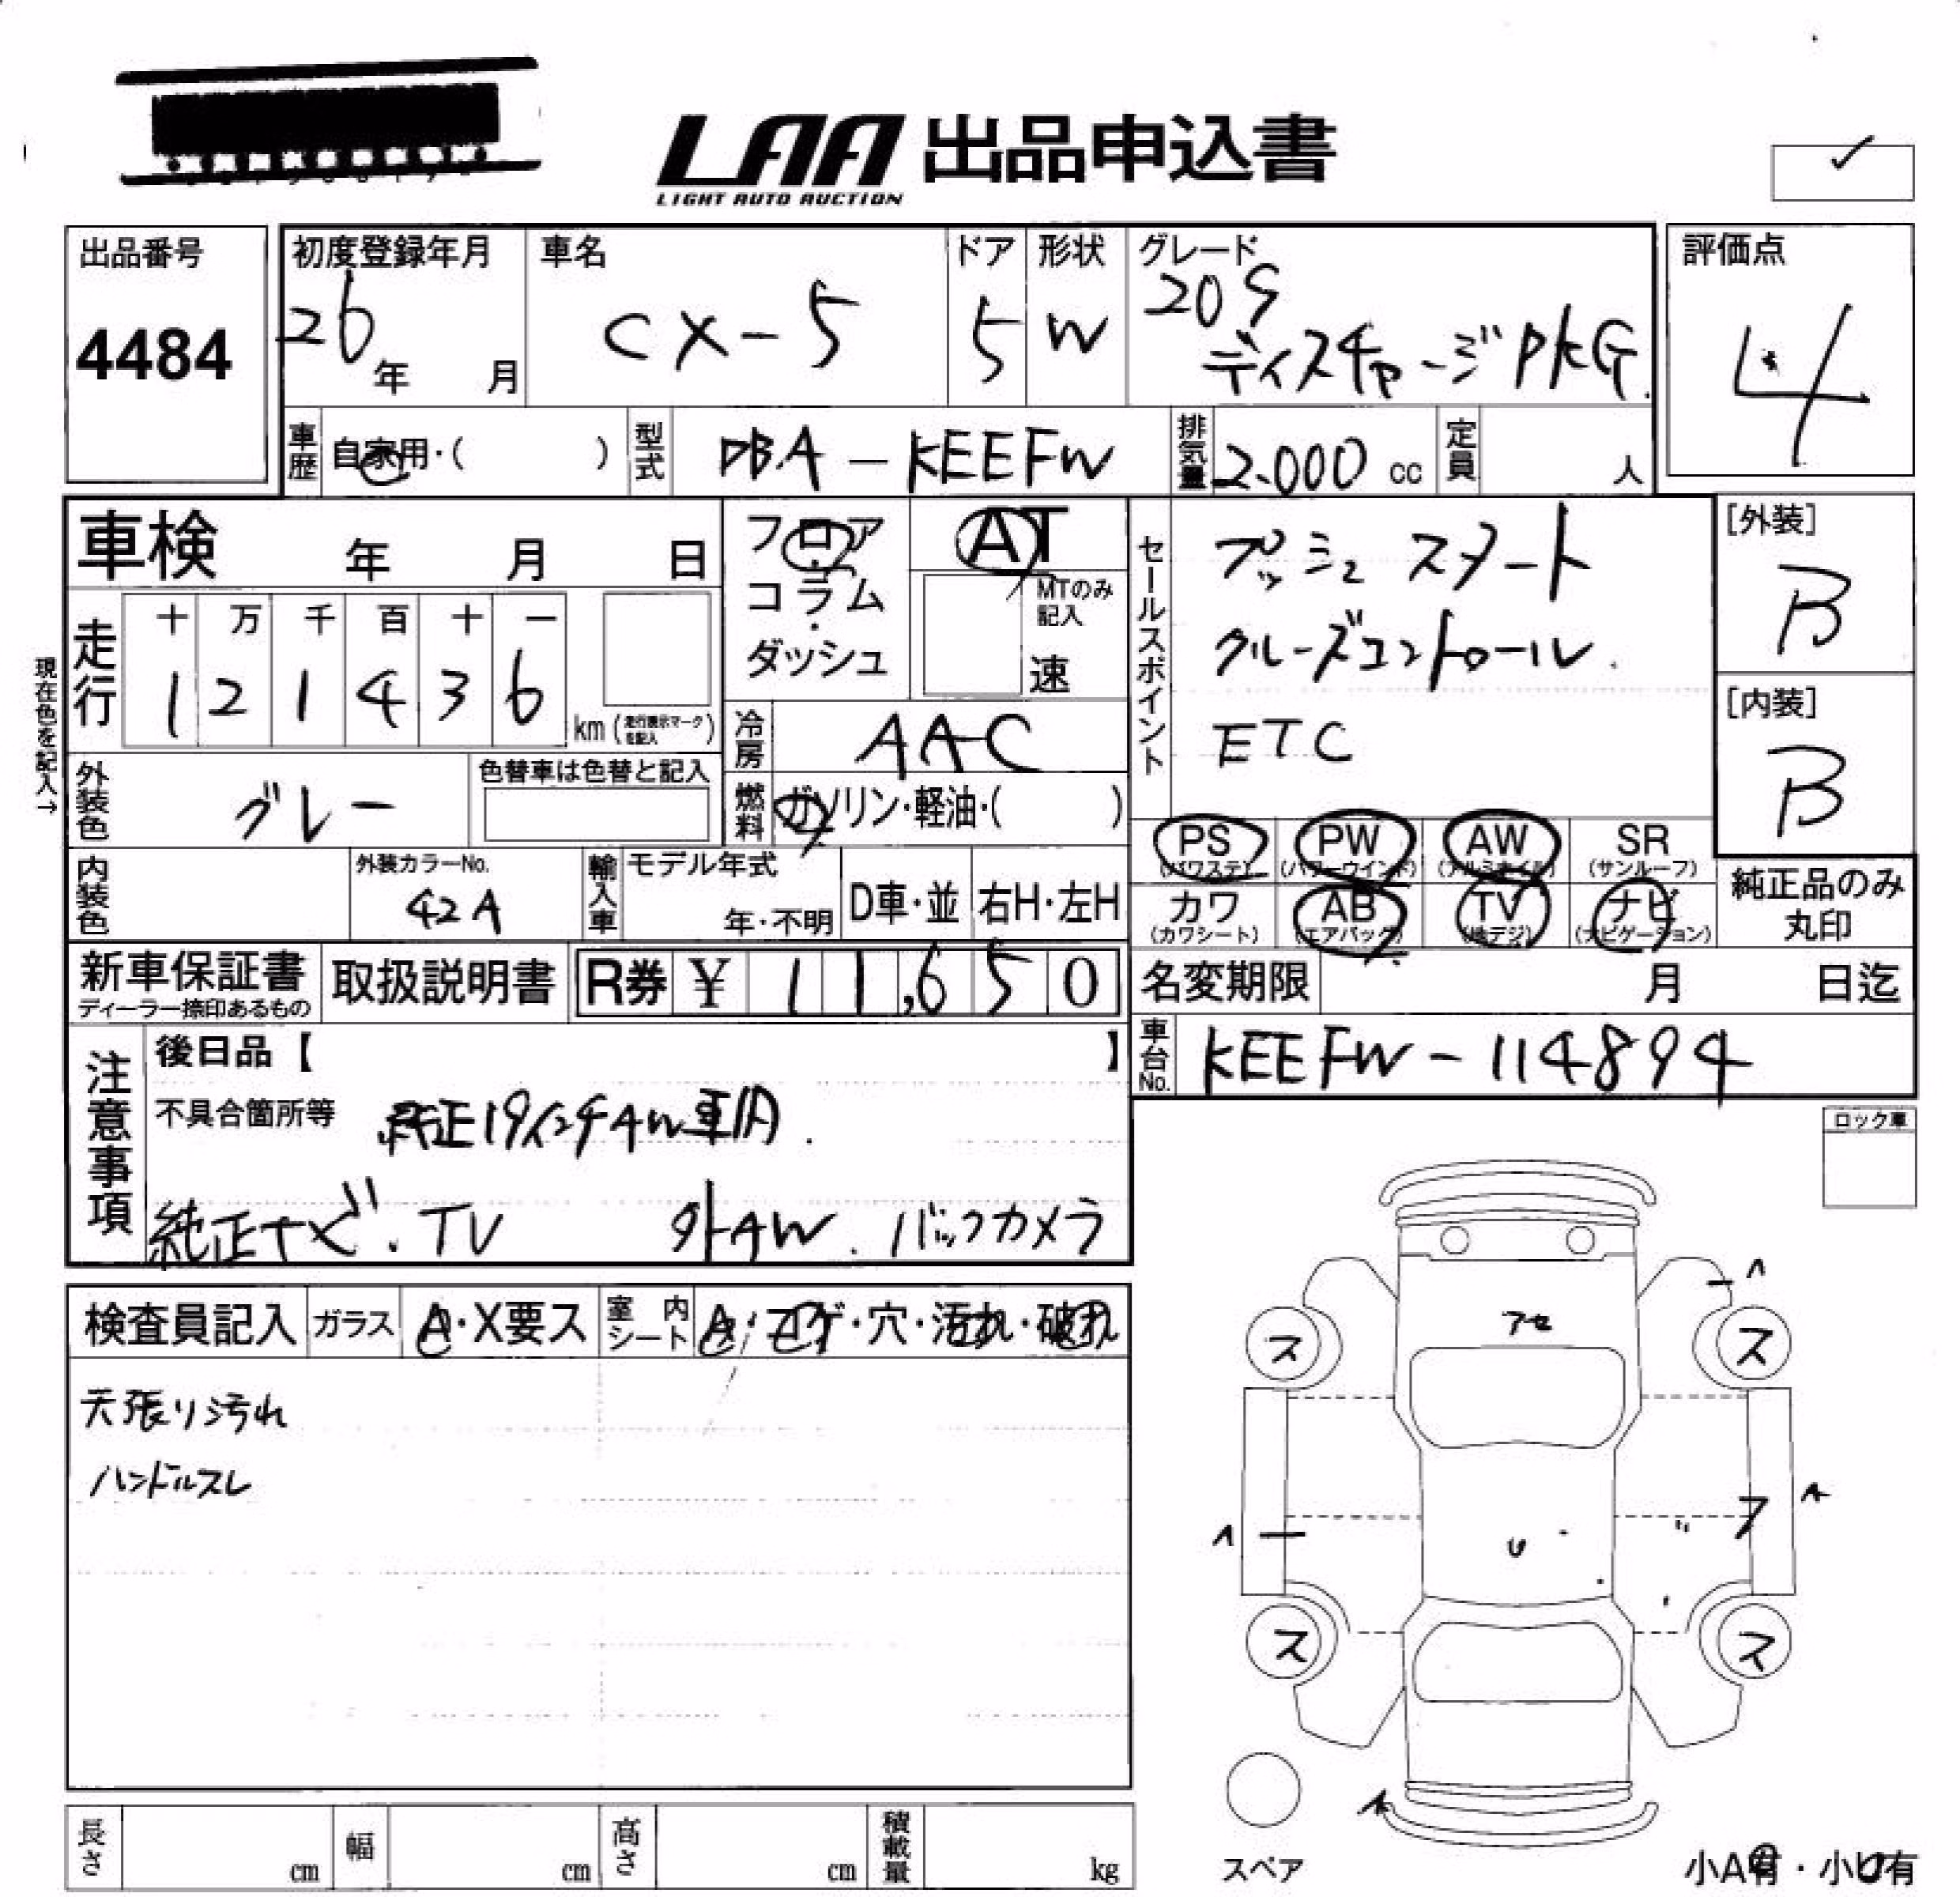 LAA 出品申込書
LIGHT AUTO AUCTION
出品番号
4484
初度登録年月
26年 月
車名
CX-5
ドア
5
形状
W
グレード
20S
ディスチャージPKG.
評価点
4
車歴 自家用・( )
型式 DBA-KEEFW
排気量 2.000 cc
定員 人
車検 年 月 日
フロア
・
コラム
・
ダッシュ
AT
MTのみ
記入
速
セールスポイント
プッシュスタート
クルーズコントロール.
ETC
[外装]
B
[内装]
B
現在色を記入→
走行
十 万 千 百 十 一
1 2 1 4 3 6
km (走行表示マークを記入)
冷房 AAC
外装色 グレー
色替車は色替と記入
燃料 ガソリン・軽油・( )
PS PW AW SR
(パワステ) (パワーウインド) (アルミホイル) (サンルーフ)
カワ AB TV ナビ
(カワシート) (エアバッグ) (地デジ) (ナビゲーション)
純正品のみ
丸印
内装色
外装カラーNo.
42A
輸入車
モデル年式
年・不明
D車・並
右H・左H
新車保証書
ディーラー捺印あるもの
取扱説明書
R券 ¥ 11,650
名変期限 月 日迄
車台No. KEEFW-114894
注意事項
後日品【 】
不具合箇所等 純正19インチAW車内.
純正ナビ.TV 外AW. バックカメラ
ロック車
検査員記入
ガラス A・X要ス
室内シート A・コゲ・穴・汚れ・破れ
天張り汚れ
ハンドルスレ
A
ス ス
アセ
A フ A
U
ス ス
A
スペア
小A有・小U有
長さ cm
幅 cm
高さ cm
積載量 kg